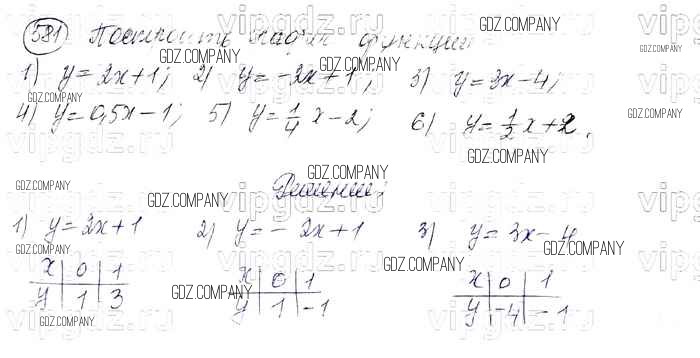 581 Построить график функции
1) y=2x+1; 2) y=-2x+1; 3) y=3x-4;
4) y=0,5x-1; 5) y=1/4 x-2; 6) y=1/2 x+2.
Решение:
1) y=2x+1 2) y=-2x+1 3) y=3x-4
x 0 1 x 0 1 x 0 1
y 1 3 y 1 -1 y -4 -1
GDZ.COMPANY
vipgdz.ru